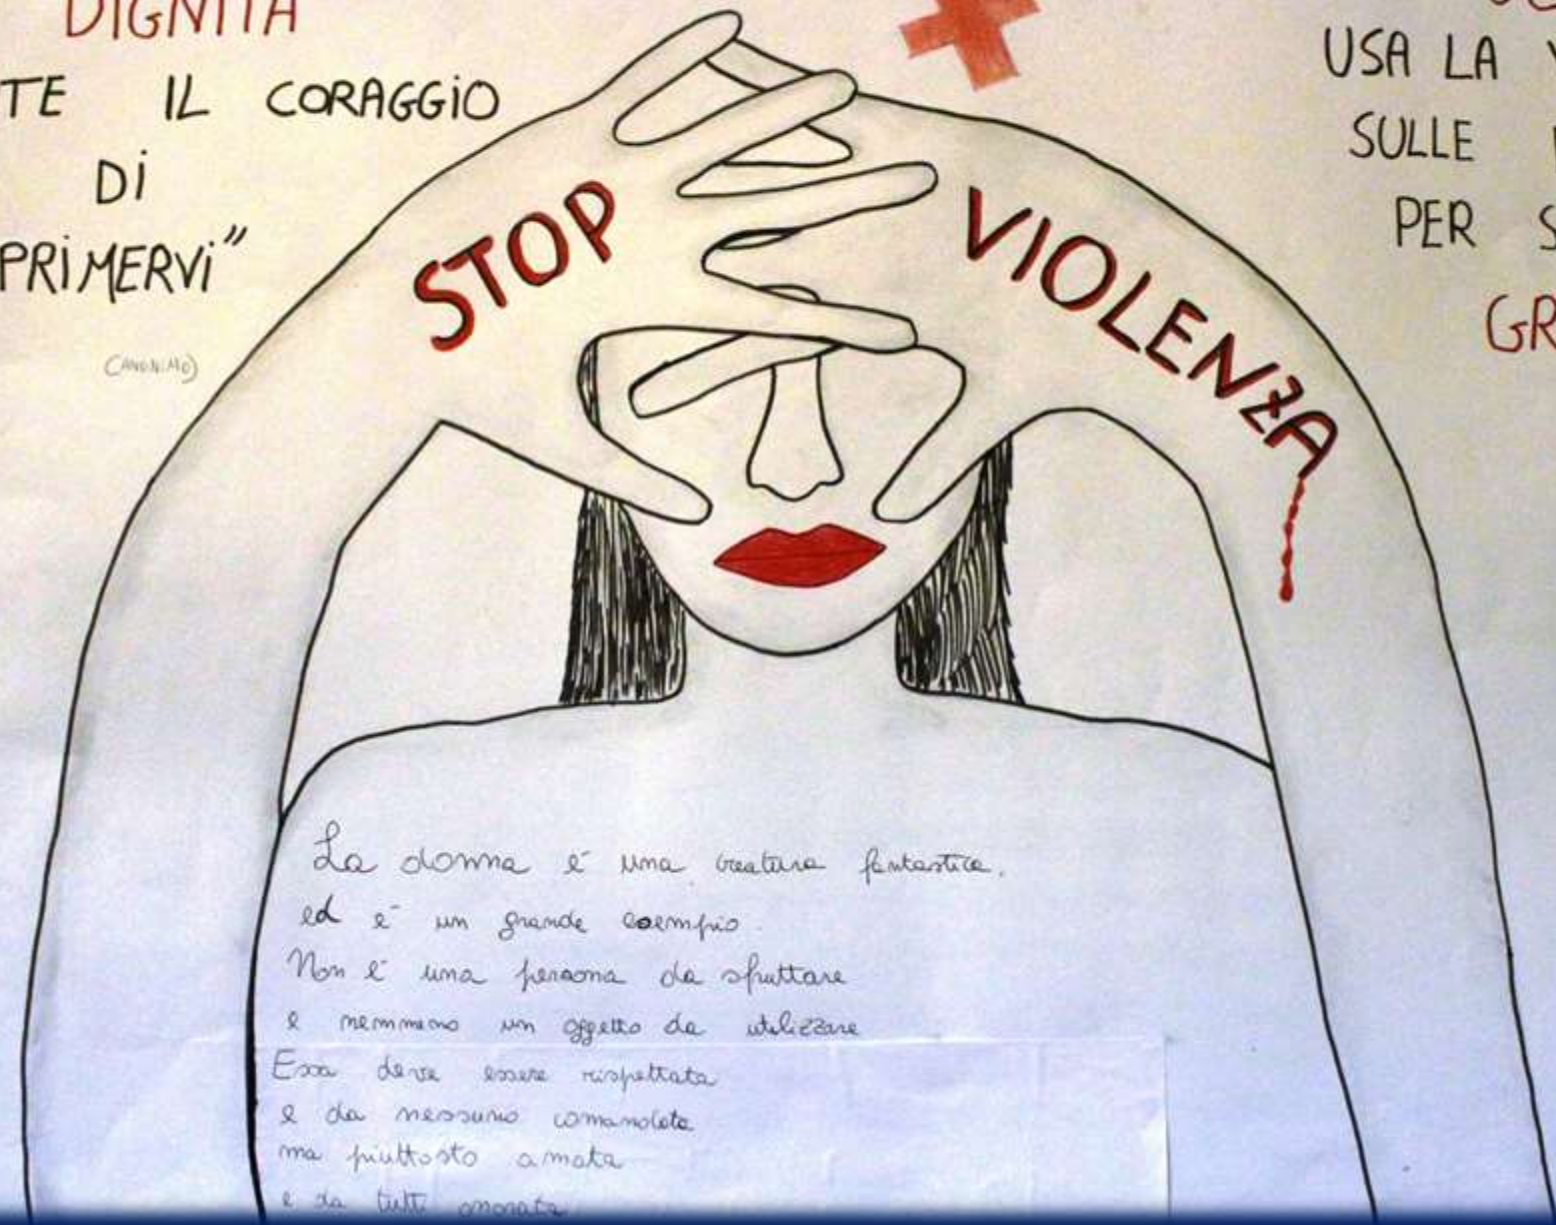 DIGNITÀ
TE IL CORAGGIO
DI
PRIMERVI"
(ANONIMO)
USA LA
SULLE
PER S
GR
STOP VIOLENZA
La donna è una creatura fantastica,
ed è un grande esempio.
Non è una persona da sfruttare
e nemmeno un oggetto da utilizzare
Essa deve essere rispettata
e da nessuno comandata
ma piuttosto amata
e da tutti onorata